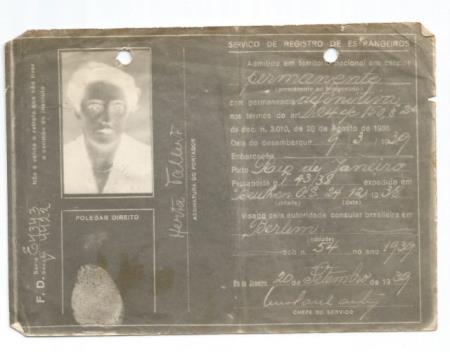 Não é valido o retrato que não tiver
o carimbo do Instituto
F. D. Serie
POLEGAR DIREITO
Herta
ASSINATURA DO PORTADOR
SERVIÇO DE REGISTRO DE ESTRANGEIROS
Admitido em territorio nacional em carater
permanente
(permanente ou temporario)
com permanencia definitiva
nos termos do art.
do dec. n. 3.010, de 20 de Agosto de 1938
Data do desembarque 9 3 1939
Embarcação
Porto Rio de Janeiro
Passaporte n. 43/38 expedido em
24 12 1938
Visado pela autoridade consular brasileira em
Berlim
(cidade)
sob n. 54 no ano 1939
Rio de Janeiro, 20 de Setembro de 1939
CHEFE DO SERVIÇO